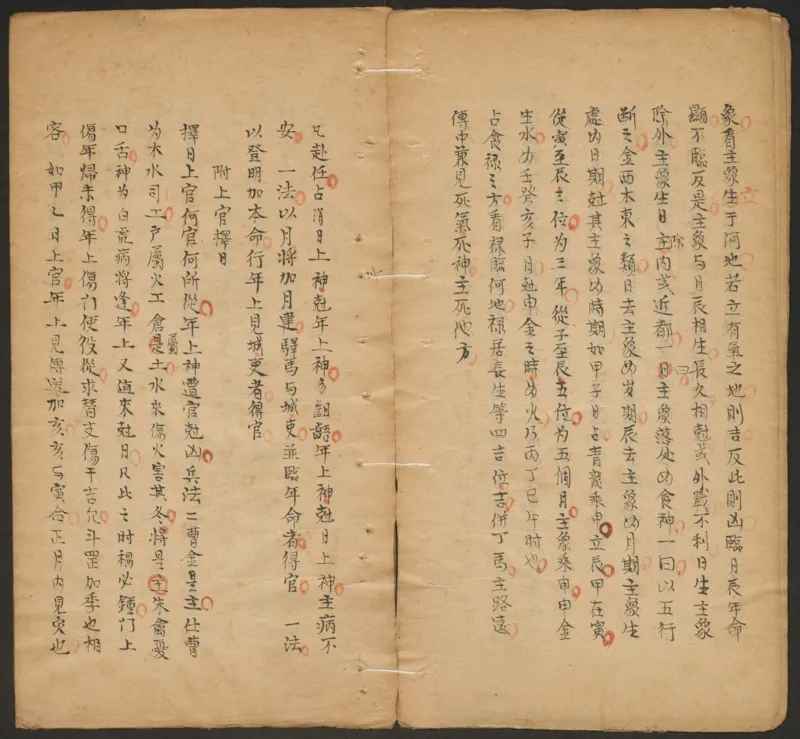 象看主象生于何地若立有氣之地則吉反此則凶臨月辰年命
顯不臨反是主象与日辰相生長久相尅或外戰不利日生主象
除外主象生日主内或近都一日主象落处如食神一曰以五行
断之金西木東之類日去主象如歲期辰去主象如月期主象生
處如日期尅其主象如時期如甲子日占青龍乘申立辰甲在寅
從寅至辰三位为三年從子至辰五位为五個月主象乘申申金
生水如壬癸亥子日尅申金之時如火乃丙丁巳午時也
占食禄之方看禄臨何地禄居長生等四吉位吉併丁馬主路遠
傳中兼見死氣死神主死他方
凡赴任占消日上神尅年上神多齟齬年上神尅日上神主病不
安 一法以月將加月建驛馬与城吏並臨年命者得官 一法
以登明加本命行年上見城吏者得官
附上官擇日
擇日上官何官何所從年上神遭官尅凶兵法二曹金是主仕曹
为木水司工户屬火工倉是屬土水來傷火害其冬將是主朱禽憂
口舌神为白虎病將逢年上又值來尅月凡此之時禍必鍾门上
傷年歸未得年上傷门使役從求替支傷干吉欠斗罡加季也相
容 如甲乙日上官年上見傳送加亥亥与寅合正月内見灾也